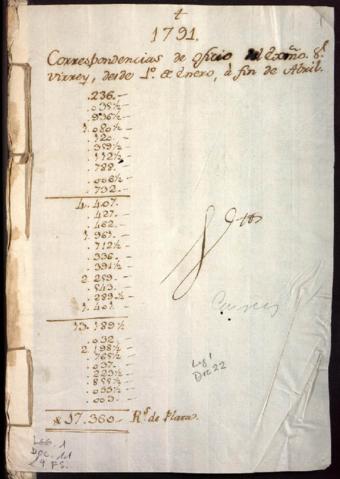 †
1791.
Correspondencias de oficio del Exmo. Sr.
Virrey, desde 1º. de Enero, à fin de Abril.
.236.-
.035½-
.936½-
1.080½-
.120.-
.359½-
.112½-
.788.-
.006½-
.732.-
4.407.-
.427.-
.462.-
1.961.-
.712½-
.336.-
.391½-
2.259.-
.543.-
.289½-
1.401.-
13.189½-
.032.-
2.198½-
.765½-
.037.-
.223½-
.855½-
.055½-
.003.-
$ 17.360.- Rs. de Plata.
Correos
Leg 1
Doc 22
Leg. 1
Doc. 11
29 FS.